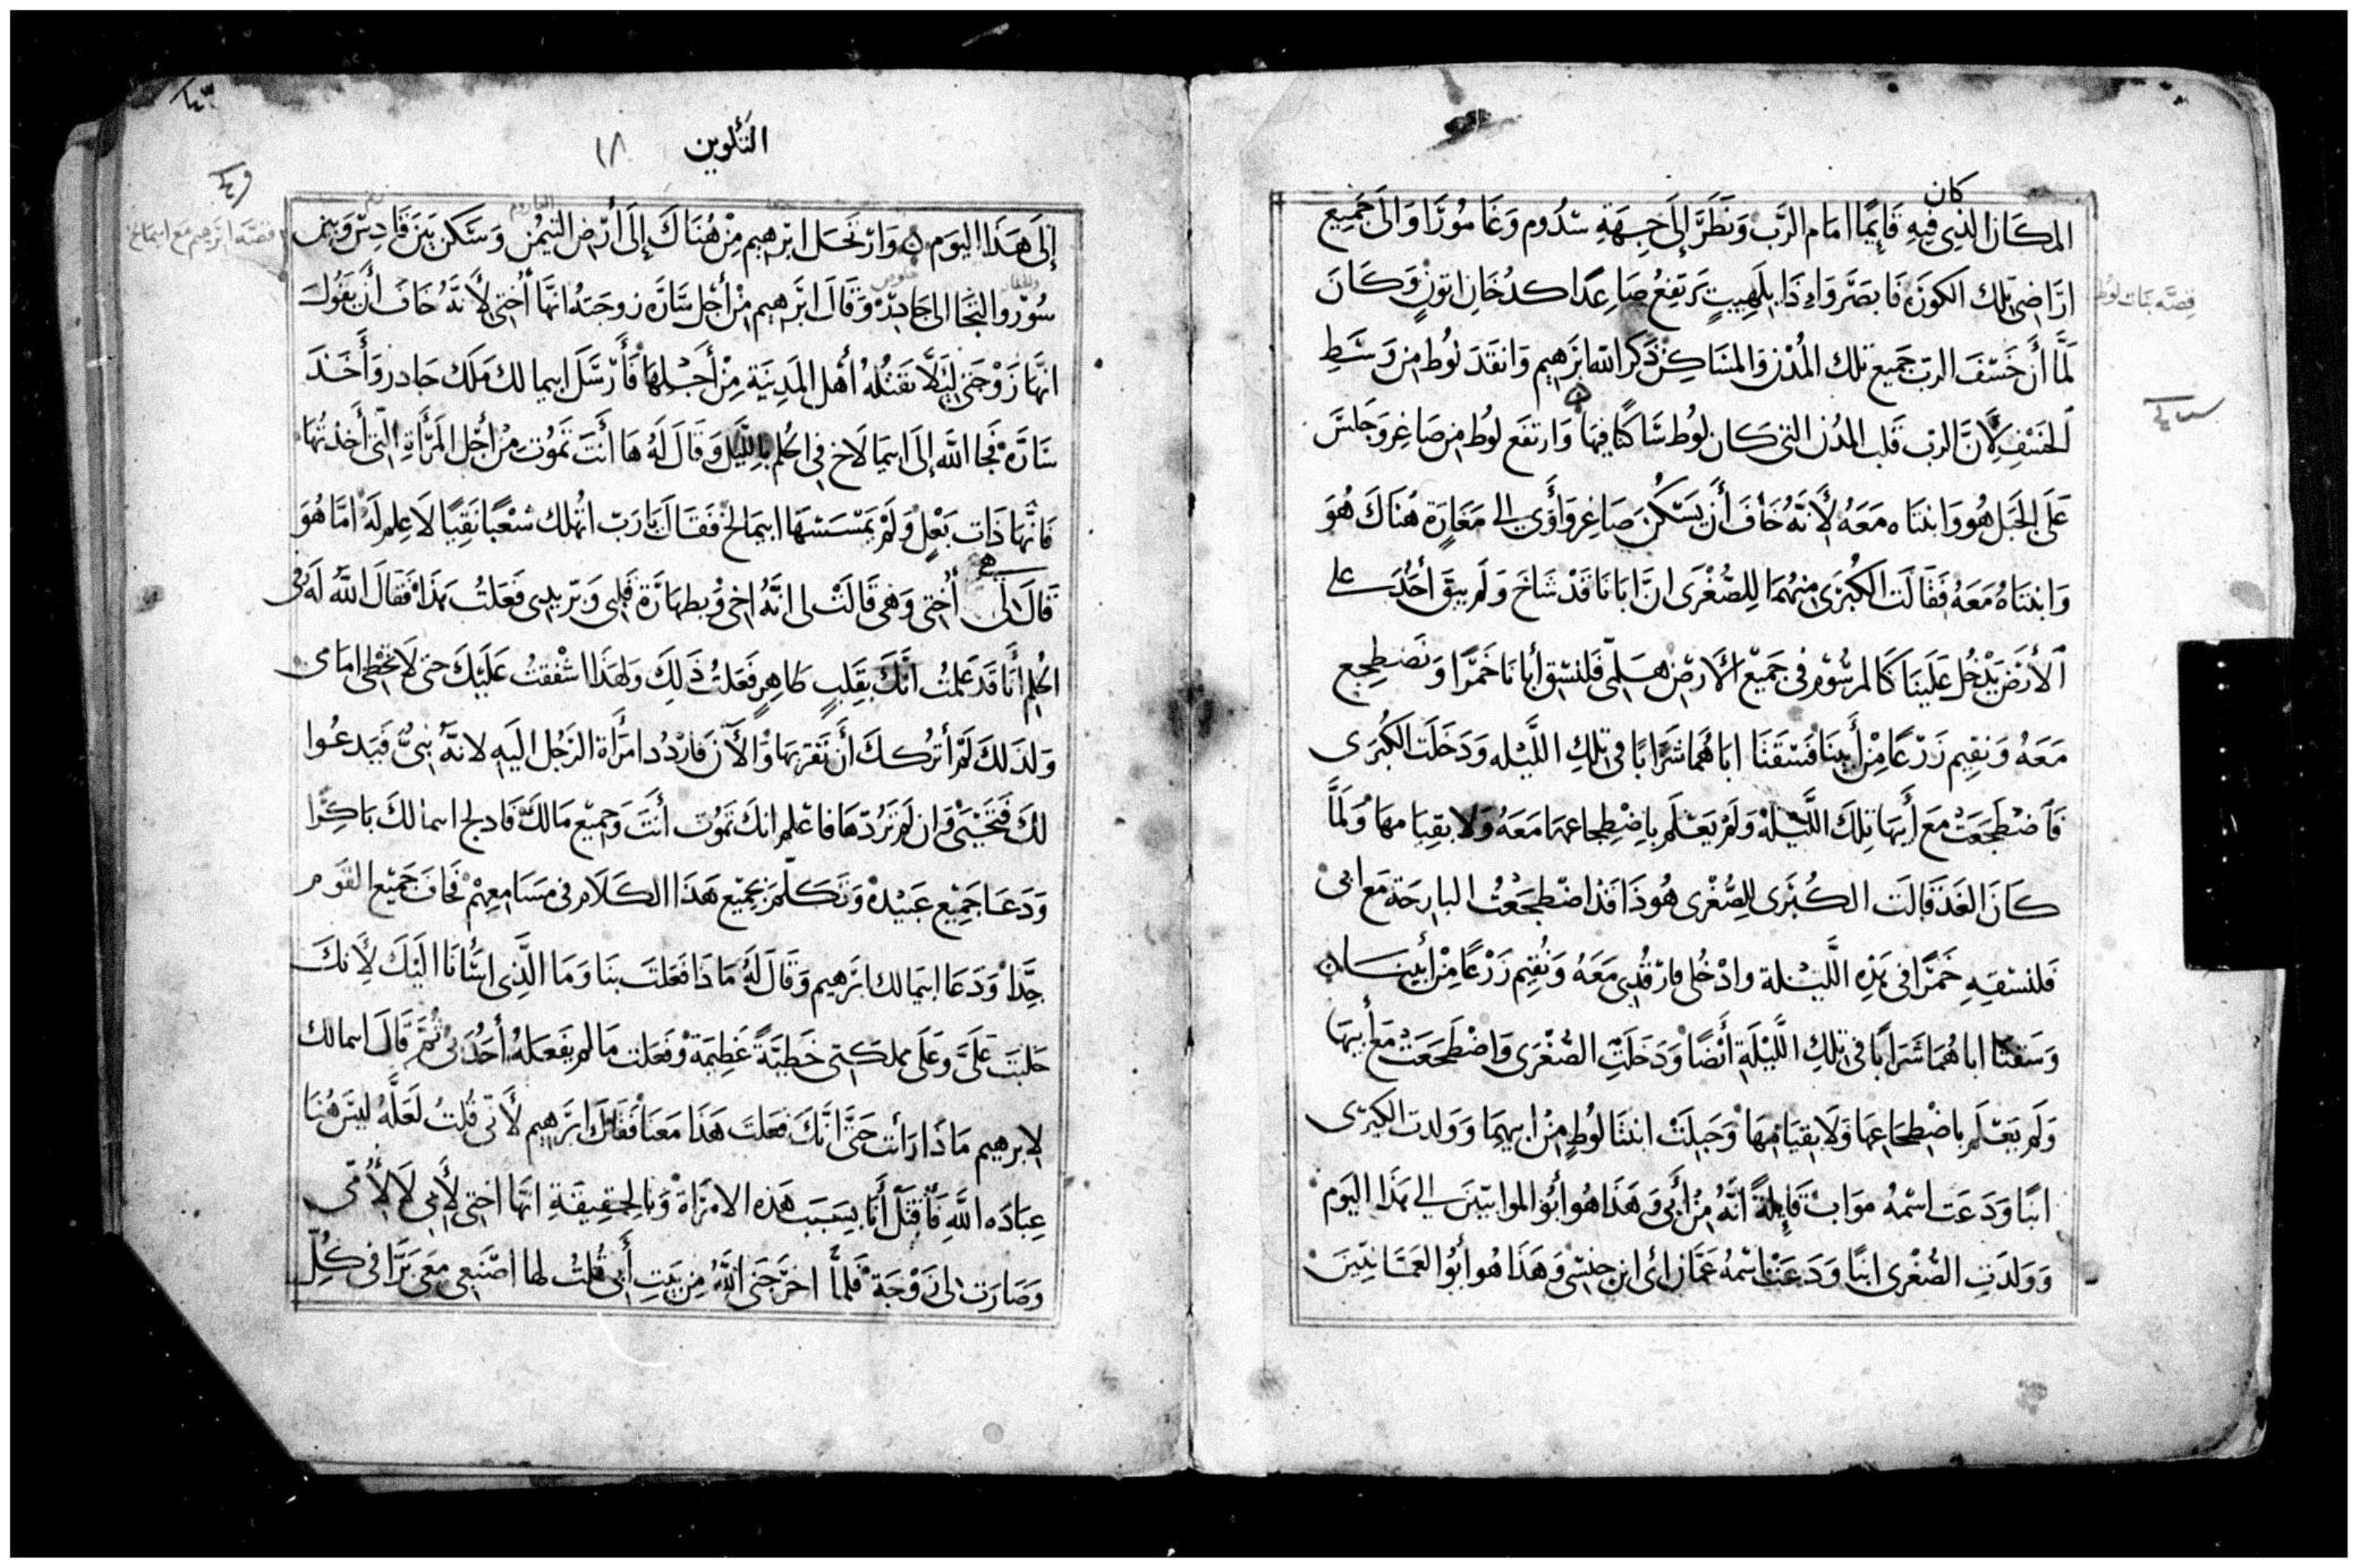 كان
المكان الذي فيه قايمًا امام الرب ونظر إلى جهة سدوم وغامورا والى جميع
اراضي تلك الكورة فابصر واذا بلهيبٍ ترتفع صاعدًا كدخان اتون وكان
قصة بنات لوط
لما أن خسف الرب جميع تلك المدن والمساكن ذكر الله ابرهيم وانقذ لوط من وسط
الخسف لأن الرب قلب المدن التي كان لوط ساكنًا فيها وارتفع لوط من صاغر وجلس
على الجبل هو وابنتاه معه لأنه خاف أن يسكن صاغر وأوى الى مغارة هناك هو
وابنتاه معه فقالت الكبرى منهما للصغرى ان ابانا قد شاخ ولم يبق أحد على
الأرض يدخل علينا كالمرسوم في جميع الأرض هلمي فلنسق أبانا خمرًا ونضطجع
معه ونقيم زرعًا من أبينا فسقتا اباهما شرابًا في تلك الليله ودخلت الكبرى
فاضطجعت مع أبيها تلك الليلة ولم يعلم باضطجاعها معه ولا بقيامها ولما
كان الغد قالت الكبرى للصغرى هوذا قد اضطجعت البارحة مع ابي
فلنسقيه خمرًا في هذه الليلة وادخلي فارقدي معه ونقيم زرعًا من أبينا
وسقتا اباهما شرابًا في تلك الليلة أيضًا ودخلت الصغرى واضطجعت مع أبيها
ولم يعلم باضطجاعها ولا بقيامها وحبلت ابنتا لوط من ابيهما وولدت الكبرى
ابنًا ودعت اسمه مواب قايلةً انه من أبي وهذا هو أبو الموابيين الى هذا اليوم
وولدت الصغرى ابنًا ودعت اسمه عمان اى ابن جنسي وهذا هو أبو العمانيين
التكوين ١٨
إلى هذا اليوم وارتحل ابرهيم من هناك إلى أرض التيمن وسكن بين قادس وبين
قصة ابرهيم مع ابيمالخ
سور والتجا الى جادر وقال ابرهيم من أجل سارة زوجته انها أختي لأنه خاف أن يقول
انها زوجتي ليلا تقتله أهل المدينة من أجلها فأرسل ابيمالك ملك جادر وأخذ
سارة فجا الله إلى ابيمالاخ في الحلم بالليل وقال له ها أنت تموت من أجل المرأة التي أخذتها
فانها ذات بعل ولم يمسسها ابيمالخ فقال يا رب اتهلك شعبًا نقيًا لا علم له اما هو
قال لي هي أختي وهي قالت لي انه اخي وبطهارة قلبي وبر يدي فعلت هذا فقال الله له في
الحلم أنا قد علمت انك بقلب طاهر فعلت ذلك ولهذا اشفقت عليك حتى لا تخطي امامي
ولذلك لم أتركك أن تقربها والآن فاردد امرأة الرجل اليه لانه نبي فيدعوا
لك فتحيى وان لم تردها فاعلم انك تموت أنت وجميع مالك فادلج ابيمالك باكرًا
ودعا جميع عبيده وتكلم بجميع هذا الكلام في مسامعهم فخاف جميع القوم
جدًا ودعا ابيمالك ابرهيم وقال له ماذا فعلت بنا وما الذي اسأنا اليك لأنك
جلبت عليّ وعلى مملكتي خطيةً عظيمة وفعلت ما لم يفعله أحد بي ثم قال ابيمالك
لابرهيم ماذا رأت حتى انك فعلت هذا معنا فقال ابرهيم لأني قلت لعله ليس هنا
عباده الله فأقتل أنا بسبب هذه الامراة وبالحقيقة انها اختي لأبي لا لأمي
وصارت لي زوجة فلما اخرجني الله من بيت أبي قلت لها اصنعي معي برًا في كل